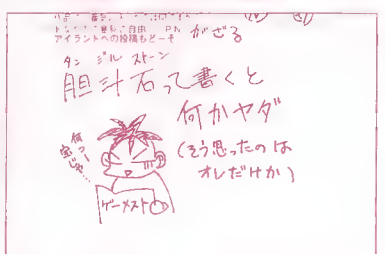 アイラントへの投稿もどーぞ
がざる
タン ジル ストーン
胆汁石って書くと
何かヤダ
(そう思ったのは
オレだけか)
何つー
ゲーメスト